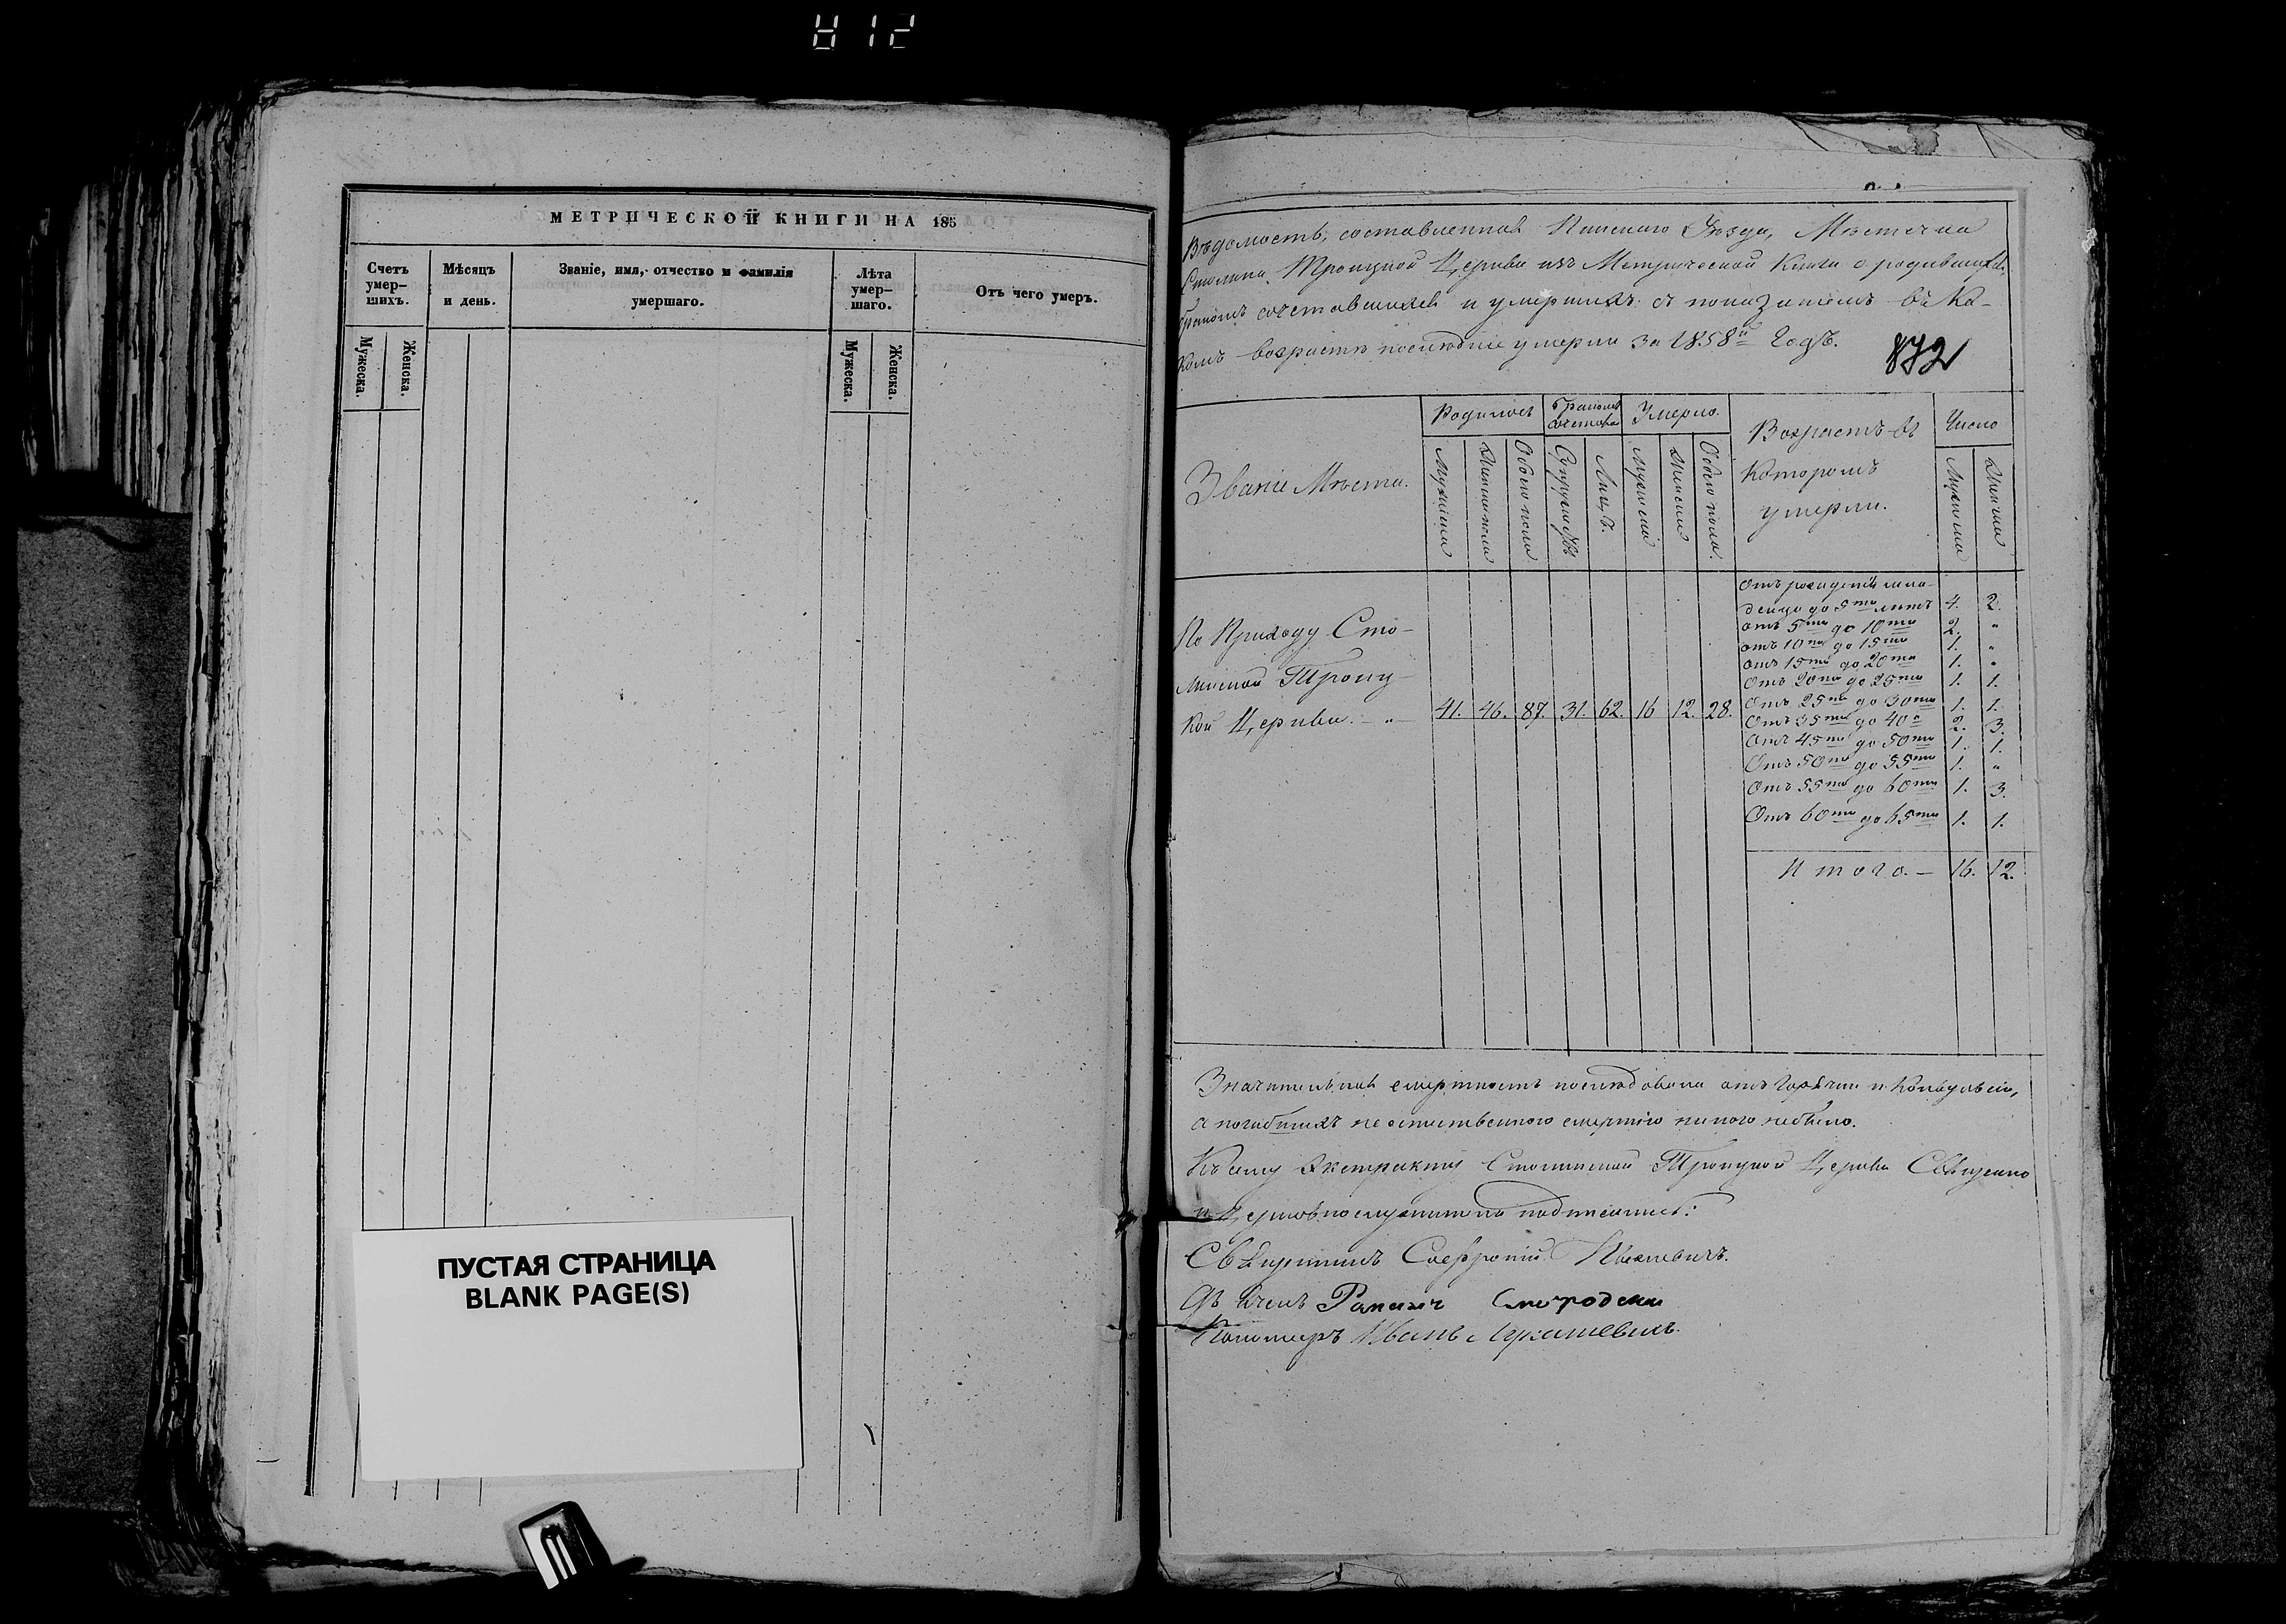 812
МЕТРИЧЕСКОЙ КНИГИ НА 185
Счетъ умер-
шихъ.
Мѣсяцъ
и день.
Званіе, имя, отчество и фамилія
умершаго.
Лѣта
умер-
шаго.
Отъ чего умеръ.
Мужеска.
Женска.
Мужеска.
Женска.
ПУСТАЯ СТРАНИЦА
BLANK PAGE(S)
Вѣдомость, составленная Пинскаго Уѣзда, Мѣстечка
Столина, Троицкой Церкви изъ Метрической Книги о родившихся,
бракомъ сочетавшихся и умершихъ съ показаніемъ въ ка-
комъ возрастѣ послѣдніе умерли за 1858й Годъ.
872
Званіе Мѣста.
Родилось
Бракомъ
Умерло.
Возрастъ въ
которомъ
умерли.
Число
Мужеска
Женска пола
Обоего пола
Супружествъ
Лицъ.
Мужеска
Женска
Обоего пола.
Мужеска
Женска
По Приходу Сто-
линской Троиц-
кой Церкви. - „ -
41. 46. 87. 31. 62. 16 12. 28.
Отъ рожденія мла-
денца до 5ти лѣтъ 4. 2.
отъ 5ти до 10ти 2. „
отъ 10ти до 15ти 1. „
отъ 15ти до 20ти 1. „
Отъ 20ти до 25ти 1. 1.
Отъ 25ти до 30ти 1. 1.
Отъ 35ти до 40а 2. 3.
Отъ 45ти до 50ти 1. 1.
Отъ 50ти до 55ти 1. „
Отъ 55ти до 60ти 1. 3.
Отъ 60ти до 65ти 1. 1.
Итого. — 16. 12.
Значительная смертность послѣдовала отъ Горячки и Конвульсіи,
а погибшихъ не естественною смертію никого небыло.
Къ сему Экстракту Столинской Троицкой Церкви Священно
и Церковнослужители подписались:
Священникъ Софроній
Дьячекъ
Пономаръ Иванъ Лукашевичъ.